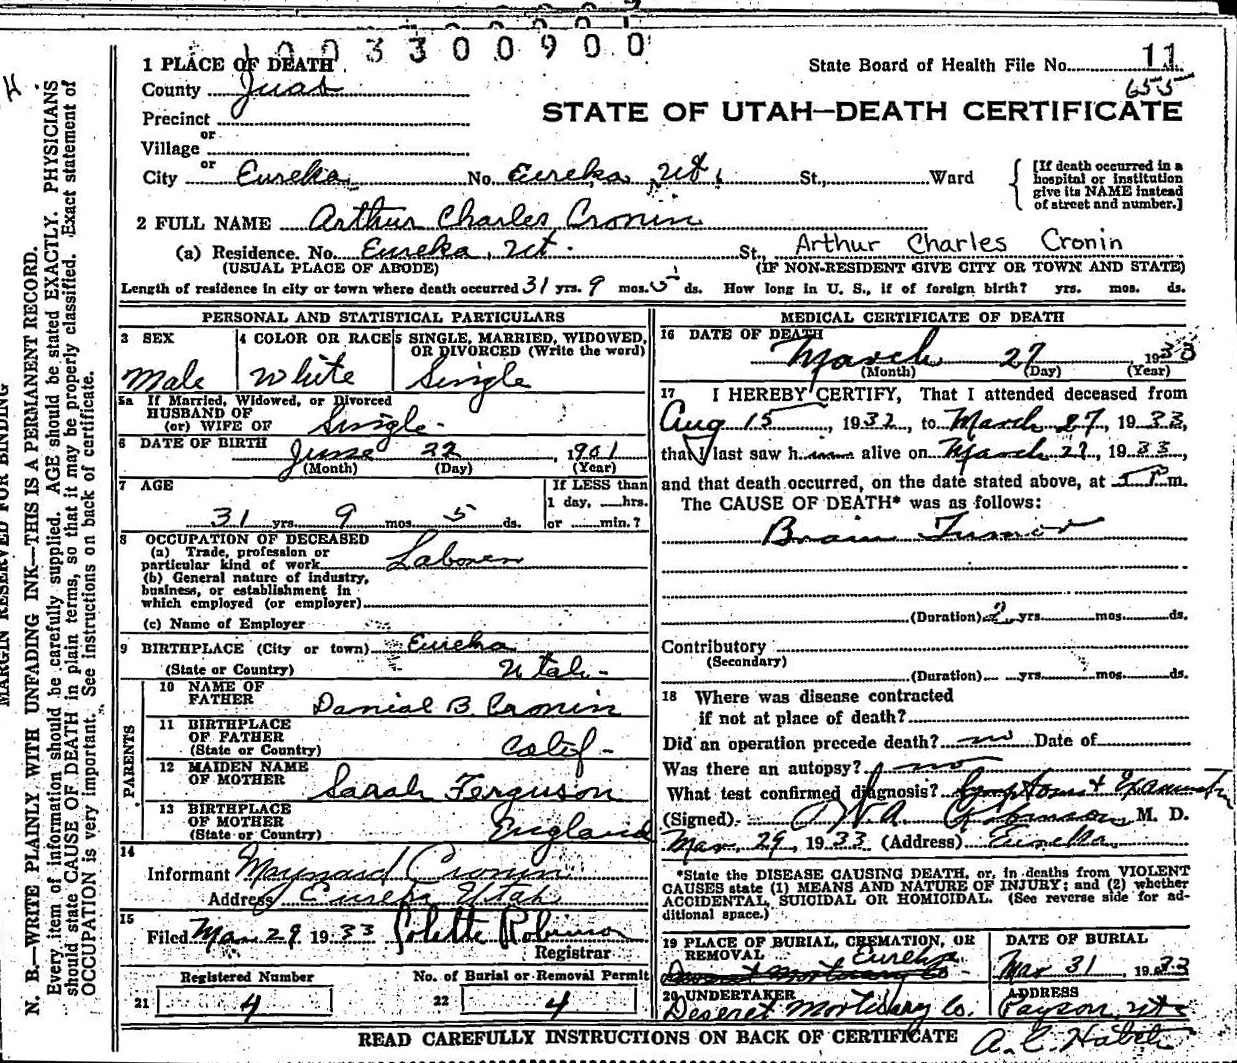 1003300900
1 PLACE OF DEATH
State Board of Health File No. 11
655
County Juab
STATE OF UTAH—DEATH CERTIFICATE
Precinct
or
Village
or
City Eureka No. Eureka, Ut. St., Ward
[If death occurred in a hospital or institution give its NAME instead of street and number.]
2 FULL NAME Arthur Charles Cronin
(a) Residence. No. Eureka, Ut. St., Arthur Charles Cronin
(USUAL PLACE OF ABODE) (IF NON-RESIDENT GIVE CITY OR TOWN AND STATE)
Length of residence in city or town where death occurred 31 yrs. 9 mos. 5 ds. How long in U. S., if of foreign birth? yrs. mos. ds.
PERSONAL AND STATISTICAL PARTICULARS
3 SEX
Male
4 COLOR OR RACE
White
5 SINGLE, MARRIED, WIDOWED, OR DIVORCED (Write the word)
Single
5a If Married, Widowed, or Divorced
HUSBAND OF
(or) WIFE OF Single
6 DATE OF BIRTH June 22, 1901
(Month) (Day) (Year)
7 AGE
31 yrs. 9 mos. 5 ds.
If LESS than
1 day, hrs.
or min.?
8 OCCUPATION OF DECEASED
(a) Trade, profession or
particular kind of work Laborer
(b) General nature of industry,
business, or establishment in
which employed (or employer)
(c) Name of Employer
9 BIRTHPLACE (City or town) Eureka
(State or Country) Utah
PARENTS
10 NAME OF
FATHER Danial B. Cronin
11 BIRTHPLACE
OF FATHER
(State or Country) Calif
12 MAIDEN NAME
OF MOTHER Sarah Ferguson
13 BIRTHPLACE
OF MOTHER
(State or Country) England
14
Informant Maynard Cronin
Address Eureka Utah
15
Filed Mar 29 1933 Colette Robinson
Registrar
Registered Number
21 4
No. of Burial or Removal Permit
22 4
MEDICAL CERTIFICATE OF DEATH
16 DATE OF DEATH
March 27 1933
(Month) (Day) (Year)
17 I HEREBY CERTIFY, That I attended deceased from
Aug 15, 1932, to March 27, 1933,
that I last saw him alive on March 27, 1933,
and that death occurred, on the date stated above, at 5 P m.
The CAUSE OF DEATH* was as follows:
Brain Tumor
(Duration) 2 yrs. mos. ds.
Contributory
(Secondary)
(Duration) yrs. mos. ds.
18 Where was disease contracted
if not at place of death?
Did an operation precede death? no Date of
Was there an autopsy? no
What test confirmed diagnosis? Symptoms &
(Signed) Robinson M. D.
Mar. 29, 1933 (Address) Eureka
*State the DISEASE CAUSING DEATH, or, in deaths from VIOLENT
CAUSES state (1) MEANS AND NATURE OF INJURY; and (2) whether
ACCIDENTAL, SUICIDAL OR HOMICIDAL. (See reverse side for ad-
ditional space.)
19 PLACE OF BURIAL, CREMATION, OR
REMOVAL Eureka
Deseret Mortuary Co
DATE OF BURIAL
Mar 31, 1933
20 UNDERTAKER
Deseret Mortuary Co.
ADDRESS
Payson, Ut
READ CAREFULLY INSTRUCTIONS ON BACK OF CERTIFICATE
MARGIN RESERVED FOR BINDING
N. B.—WRITE PLAINLY WITH UNFADING INK—THIS IS A PERMANENT RECORD.
Every item of information should be carefully supplied. AGE should be stated EXACTLY. PHYSICIANS
should state CAUSE OF DEATH in plain terms, so that it may be properly classified. Exact statement of
OCCUPATION is very important. See instructions on back of certificate.